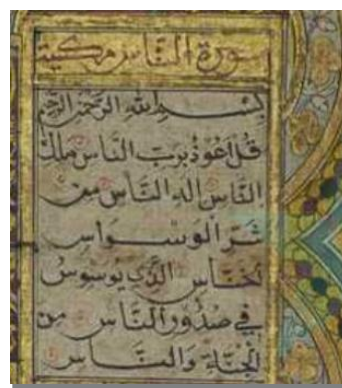 سورة الناس مكية
بسم الله الرحمن الرحيم
قُل اَعُوذُ بِرَبِّ النَّاسِ مَلِكِ
النَّاسِ اِلَهِ النَّاسِ مِنْ
شَرِّ الْوَسْوَاسِ
الْخَنَّاسِ الَّذِي يُوَسْوِسُ
فِي صُدُورِ النَّاسِ مِنَ
الْجِنَّةِ وَالنَّاسِ